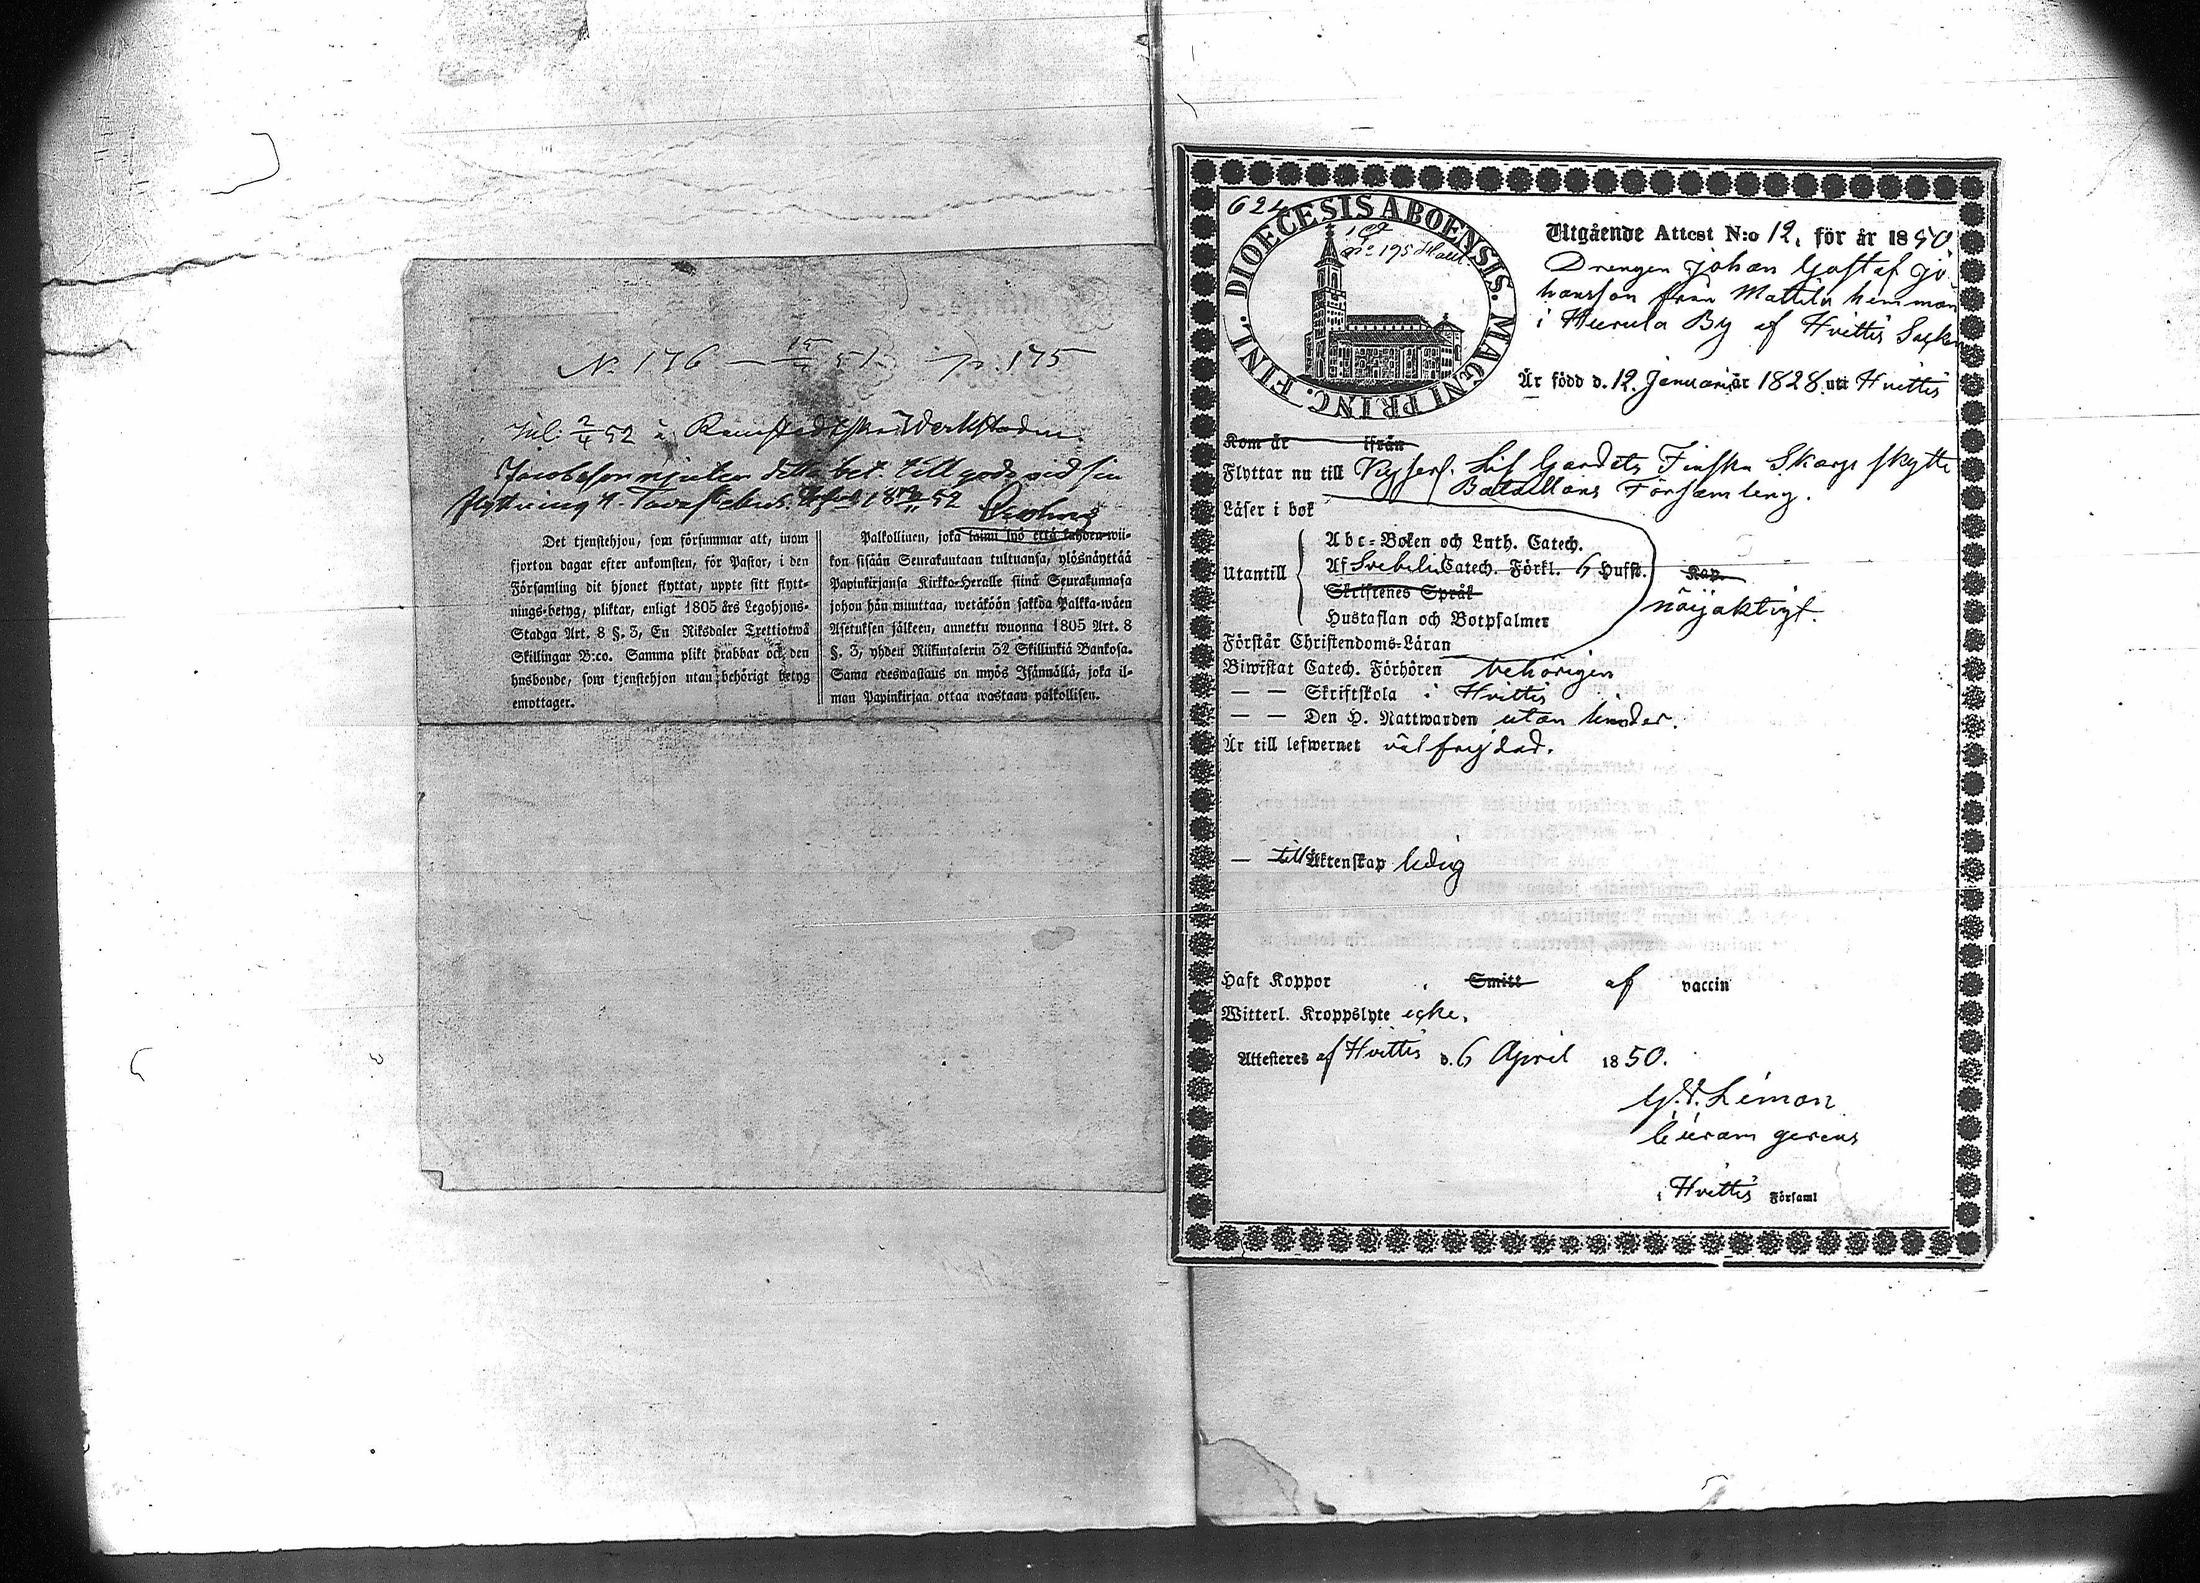 N. 176 — 15/ 51. p. 175
2/4 52 Werkstaden
Jacobsson njuter detta bet. till godo vid sin
flyttning t. Tavastehus. 52
Det tjenstehjon, som försummar att, inom
fjorton dagar efter ankomsten, för Pastor, i den
Församling dit hjonet flyttat, uppte sitt flytt-
nings-betyg, pliktar, enligt 1805 års Legohjons-
Stadga Art. 8 §. 3, En Riksdaler Trettiotwå
Skillingar B:co. Samma plikt drabbar ock den
husbonde, som tjenstehjon utan behörigt betyg
emottager.
Palkollinen, joka laimi lyö että kahden wii-
kon sisään Seurakuntaan tultuansa, ylösnäyttää
Papinkirjansa Kirkko-Heralle siinä Seurakunnasa
johon hän muuttaa, wetäköön sakkoa Palkka-wäen
Asetuksen jälkeen, annettu wuonna 1805 Art. 8
§. 3, yhden Riikintalerin 32 Skillinkiä Bankosa.
Sama edeswastaus on myös Isännällä, joka il-
man Papinkirjaa ottaa wastaan palkollisen.
624
DIOECESIS ABOENSIS. MAGNI PRINC. FINL.
No 195
Utgående Attest N:o 12. för år 1850
Drengen Johan Gustaf Jo-
hansson från Mattila hemman
i Hurula By af Hvittis Socken
Är född d. 12. Januari år 1828 uti Hvittis
Kom år ifrån
Flyttar nu till Kejserl. Lif Gardets Finska Skarpskytte
Bataillons Församling.
Läser i bok
Utantill
Abc-Boken och Luth. Catech.
Af Svebelii Catech. Förkl. 6 Hufst. Kap.
Skriftenes Språk
nöijaktigt.
Hustaflan och Botpsalmer
Förstår Christendoms-Läran
Biwistat Catech. Förhören behörigen
— — Skriftskola i Hvittis
— — Den H. Nattwarden utan hinder.
Är till lefwernet väl frejdad.
— till Äktenskap ledig
Haft Koppor Smitt af vaccin
Witterl. Kroppslyte icke.
Attesteras af Hvittis d. 6 April 1850.
Limon
Curam gerens
i Hvittis Församl